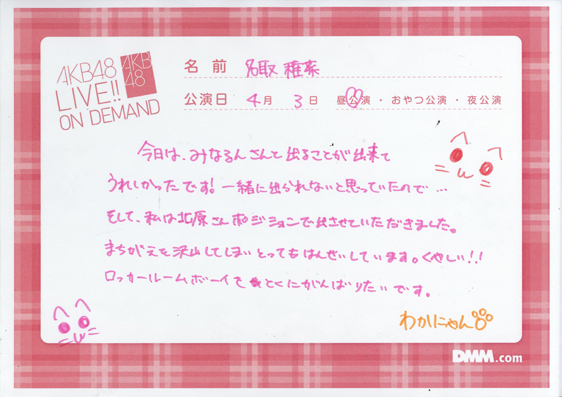 AKB48
LIVE!!
ON DEMAND
AKB
48
名 前 名取 稚菜
公演日 4月 3日 昼公演・おやつ公演・夜公演
今日は、みなるんさんと出ることが出来て
うれしかったです！一緒に出られないと思っていたので…
そして、私は北原さんポジションで出させていただきました。
まちがえを沢山してしまいとってもはんせいしています。くやしい!!
ロッカールームボーイをとくにがんばりたいです。
わかにゃん
DMM.com